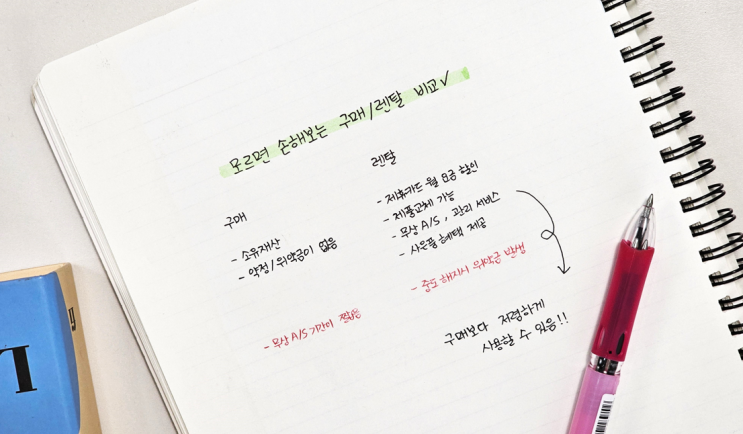 모르면 손해보는 구매/렌탈 비교✓
구매
- 소유재산
- 약정/위약금이 없음
- 무상 A/S 기간이 짧음
렌탈
- 제휴카드 월 요금 할인
- 제품교체 가능
- 무상 A/S, 관리 서비스
- 사은품 혜택 제공
- 중도 해지시 위약금 발생
구매보다 저렴하게
사용할 수 있음!!